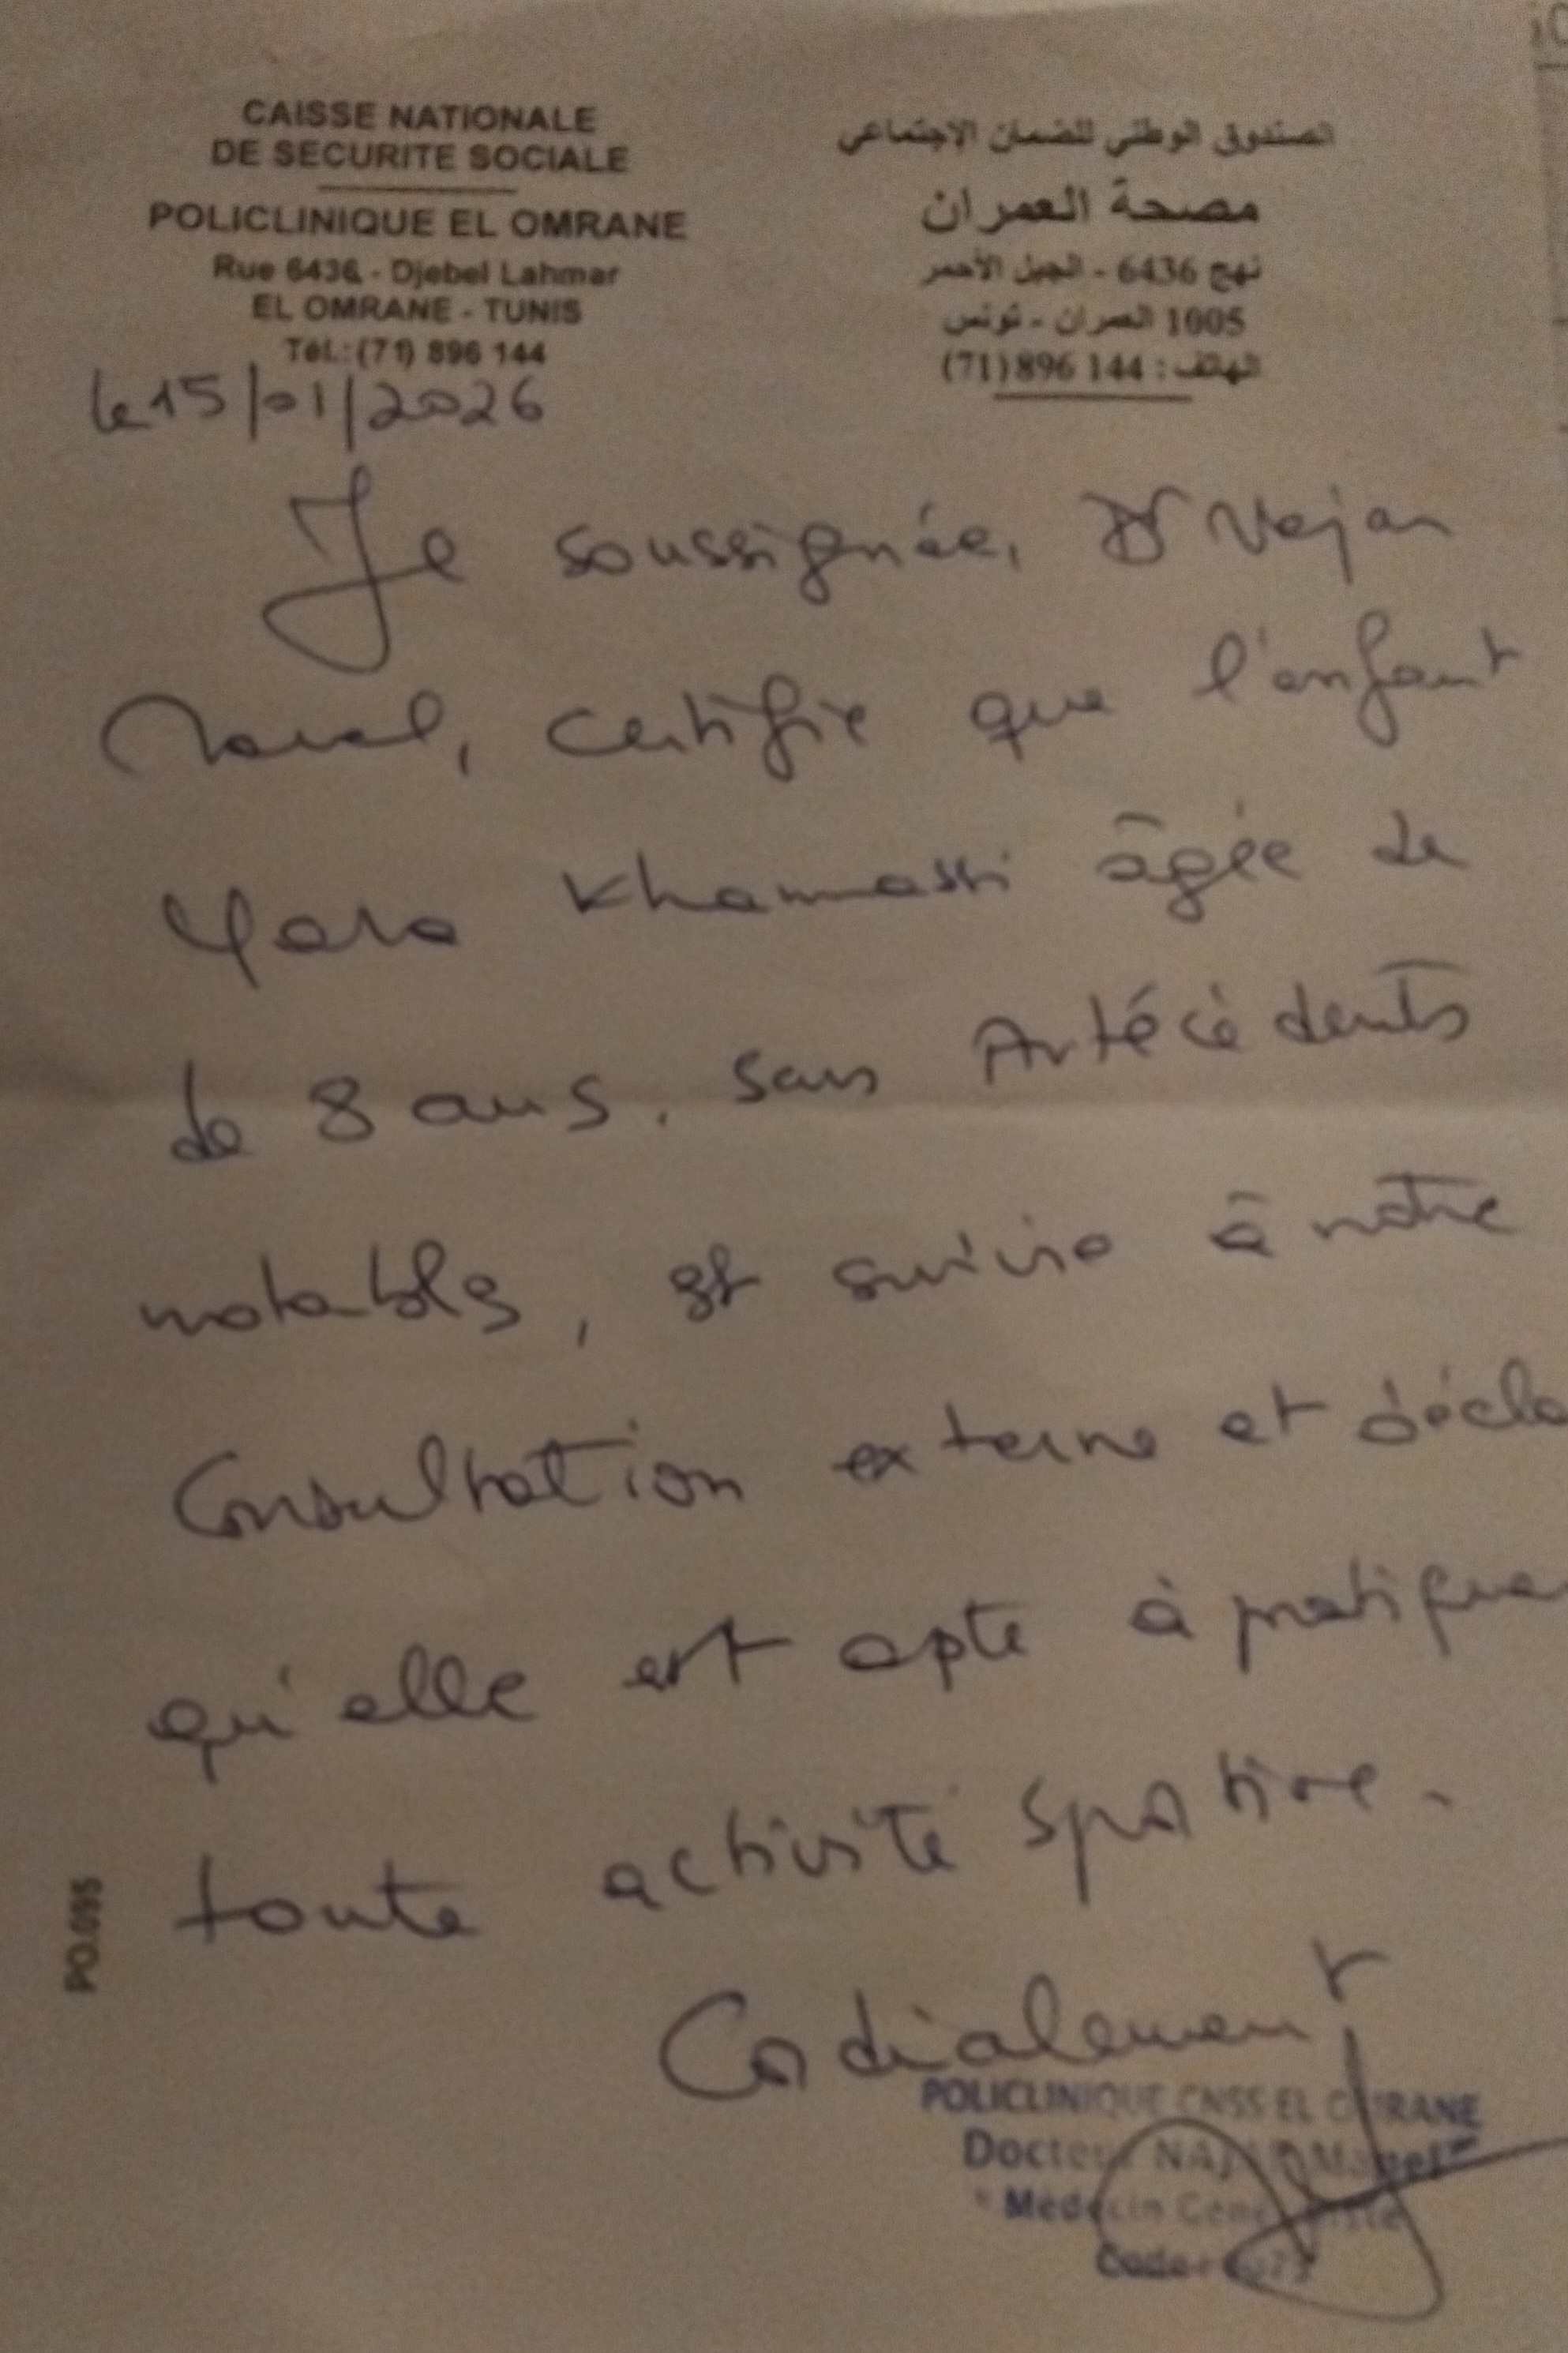 CAISSE NATIONALE
DE SECURITE SOCIALE
POLICLINIQUE EL OMRANE
Rue 6436 - Djebel Lahmar
EL OMRANE - TUNIS
Tél.: (71) 896 144
الصندوق الوطني للضمان الاجتماعي
مصحة العمران
نهج 6436 - الجبل الأحمر
1005 العمران - تونس
الهاتف : 144 896(71)
le 15/01/2026
Je soussignée, Dr Najar
Manel, certifie que l'enfant
Yara Khamassi âgée de
de 8 ans. sans Antécédents
notables, est suivie à notre
Consultation externe et décla
qu'elle est apte à pratique
toute activité sportive.
Cordialement
POLICLINIQUE CNSS EL OMRANE
Docteur NAJAR Manel
Médecin Généraliste
Code
PO.095